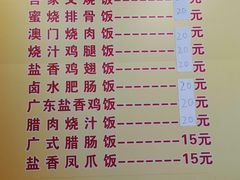 蜜烧排骨饭-------20
澳门烧肉饭-------20
烧汁鸡腿饭-------20
盐香鸡翅饭-------20
卤水肥肠饭-------20
广东盐香鸡饭-----20
腊肉烧汁饭-------20
广式腊肠饭-------15元
盐香凤爪饭-------15元